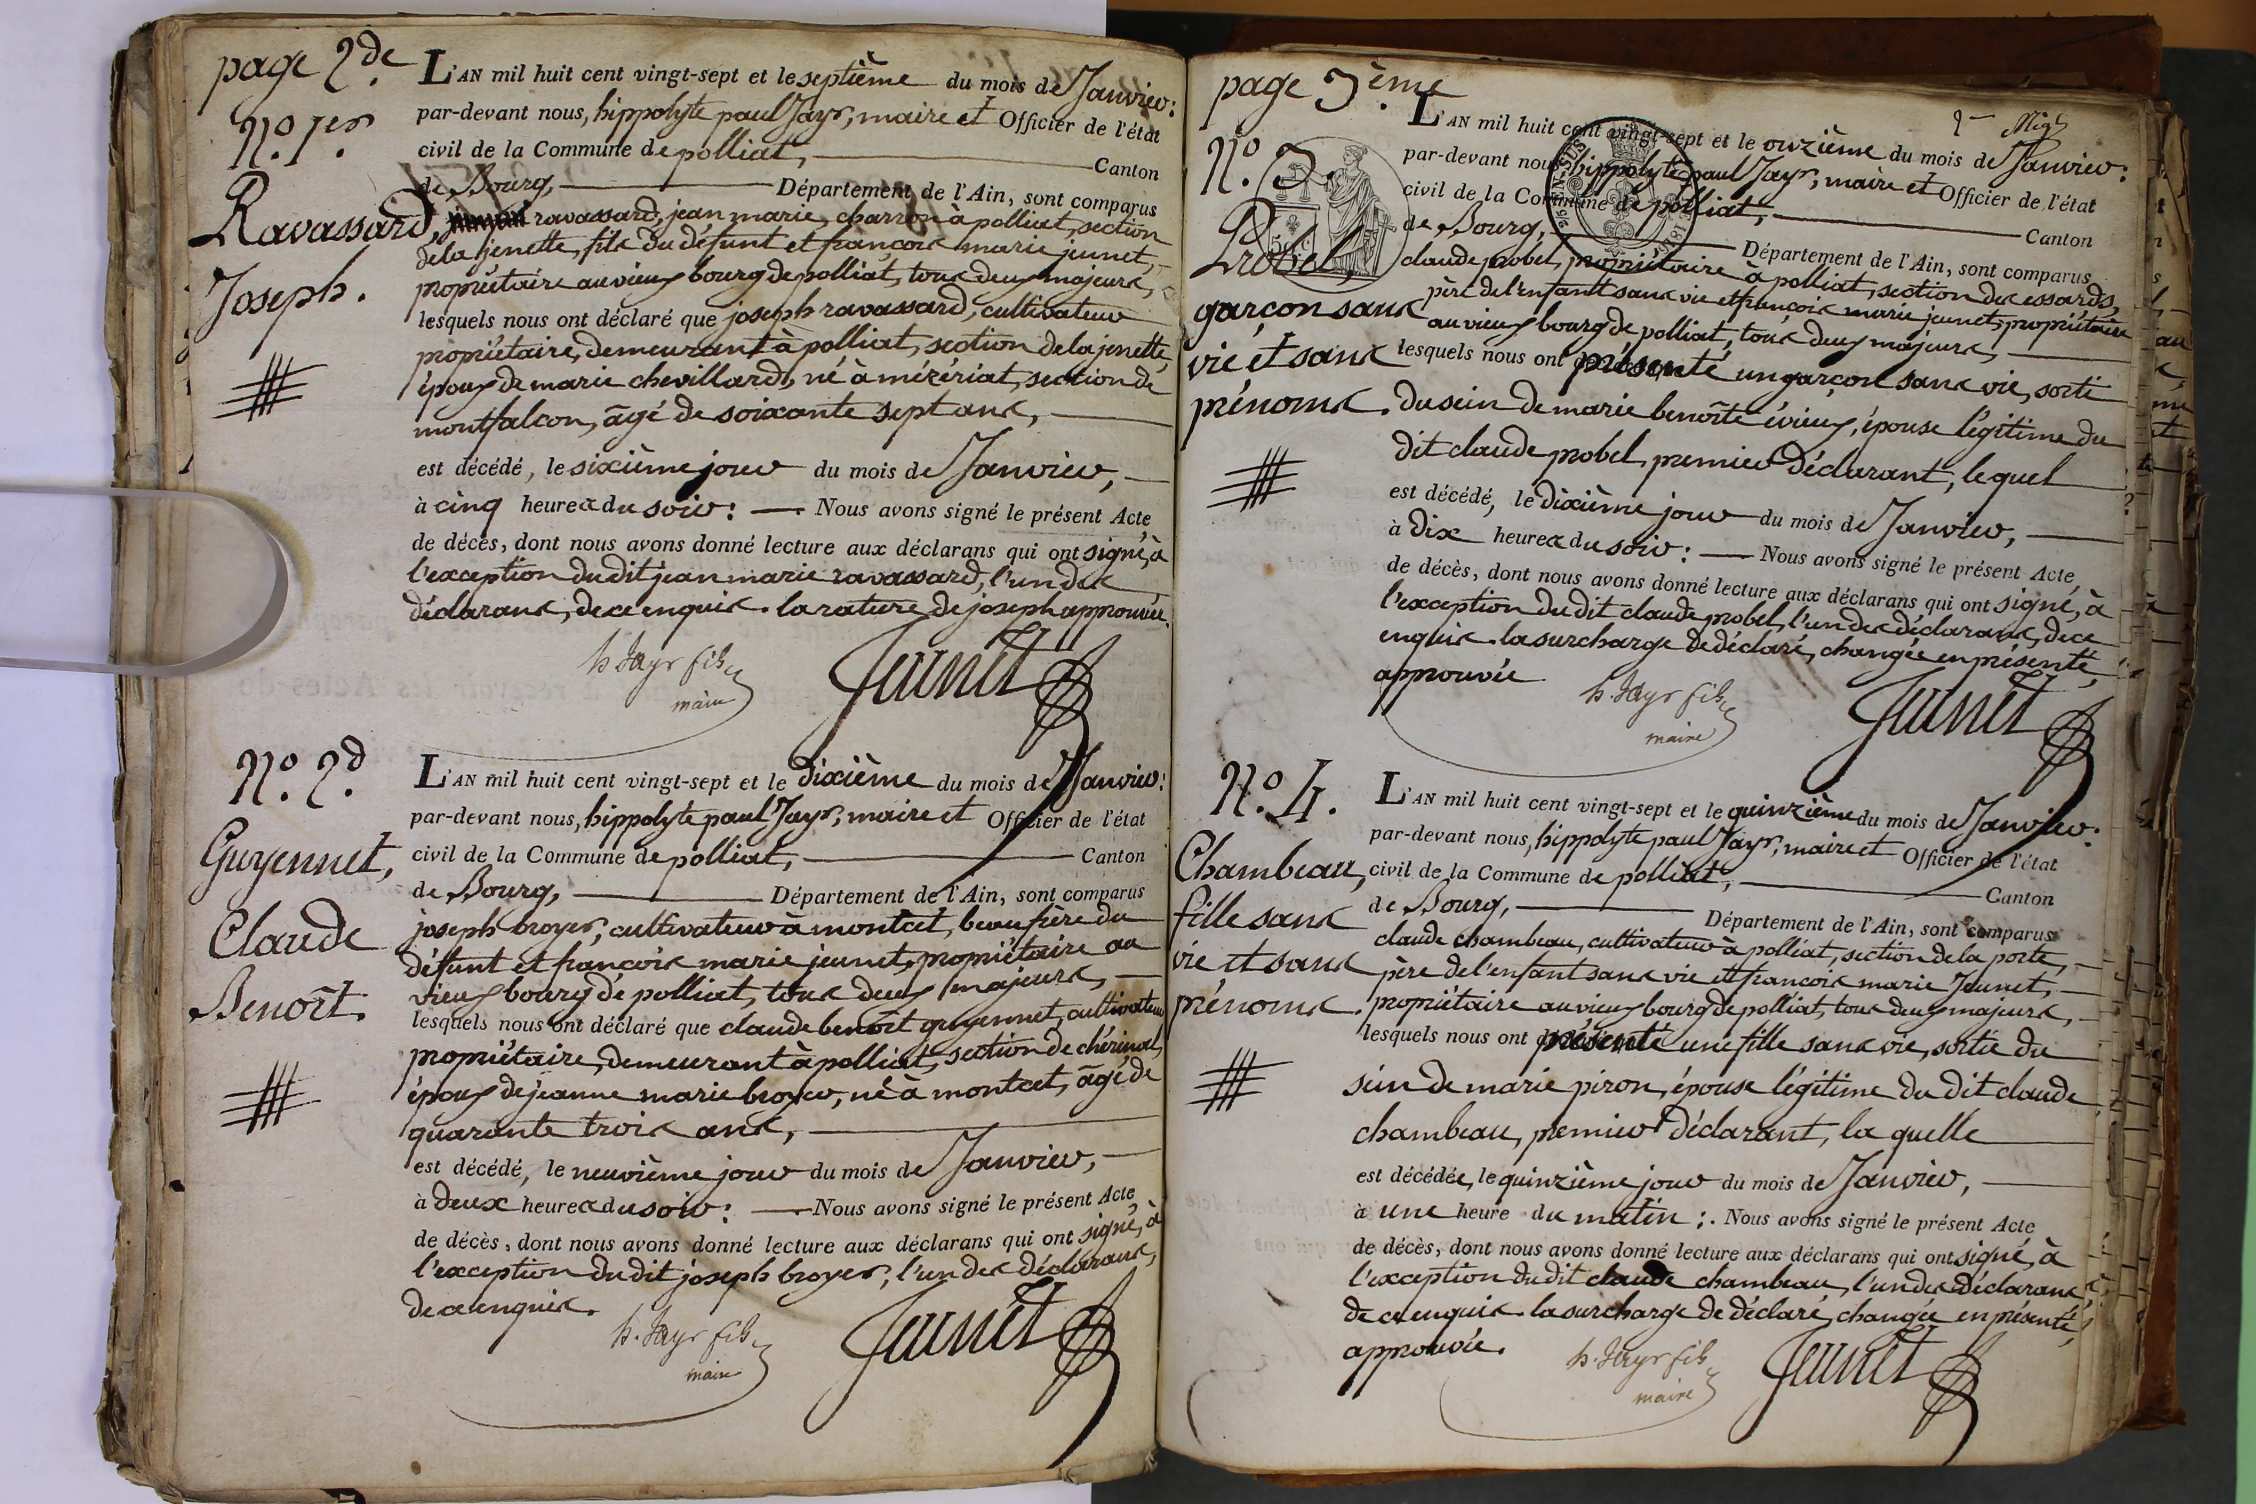 page 2de
N.o 1er.
Ravassard,
Joseph.
L'AN mil huit cent vingt-sept et le septième du mois de Janvier:
par-devant nous, hippolyte paul Jayr, maire et Officier de l'état
civil de la Commune de polliat, Canton
de Bourg, Département de l'Ain, sont comparus
ravassard, jean marie, charron à polliat, section
de la jenette, fils du défunt et françois marie jeunet,
propriétaire au vieux bourg de polliat, tous deux majeurs,
lesquels nous ont déclaré que joseph ravassard, cultivateur
propriétaire, demeurant à polliat, section de la jenette,
époux de marie chevillard, né à mézériat, section de
montfalcon, âgé de soixante sept ans,
est décédé, le sixième jour du mois de Janvier,
à cinq heures du soir: Nous avons signé le présent Acte
de décès, dont nous avons donné lecture aux déclarans qui ont signé, à
l'exception du dit jean marie ravassard, l'un des
déclarans, de ce enquis. la rature de joseph approuvée.
h. Jayr fils
maire
Jeunet
N.o 2d.
Guyennet,
Claude
Benoît.
L'AN mil huit cent vingt-sept et le dixième du mois de Janvier:
par-devant nous, hippolyte paul Jayr, maire et Officier de l'état
civil de la Commune de polliat, Canton
de Bourg, Département de l'Ain, sont comparus
joseph broyer, cultivateur à montcet, beau frère du
défunt et françois marie jeunet, propriétaire au
vieux bourg de polliat, tous deux majeurs,
lesquels nous ont déclaré que claude benoît guyennet, cultivateur
propriétaire, demeurant à polliat, section de chérinal,
époux de jeanne marie broyer, né à montcet, âgé de
quarante trois ans,
est décédé, le neuvième jour du mois de Janvier,
à deux heures du soir: Nous avons signé le présent Acte
de décès, dont nous avons donné lecture aux déclarans qui ont signé, à
l'exception du dit joseph broyer, l'un des déclarans,
de ce enquis.
h. Jayr fils
maire
Jeunet
page 3ème
N.o 3.
Probel,
garçon sans
vie et sans
prénoms.
L'AN mil huit cent vingt-sept et le onzième du mois de Janvier:
par-devant nous, hippolyte paul Jayr, maire et Officier de l'état
civil de la Commune de polliat, Canton
de Bourg, Département de l'Ain, sont comparus
claude probel, propriétaire à polliat, section des essards,
père de l'enfant sans vie et françois marie jeunet, propriétaire
au vieux bourg de polliat, tous deux majeurs,
lesquels nous ont présenté un garçon sans vie, sorti
du sein de marie benoîte évieux, épouse légitime du
dit claude probel, premier déclarant, le quel
est décédé, le dixième jour du mois de Janvier,
à dix heures du soir: Nous avons signé le présent Acte
de décès, dont nous avons donné lecture aux déclarans qui ont signé, à
l'exception du dit claude probel, l'un des déclarans, de ce
enquis. la surcharge de déclaré, changée en présenté,
approuvée
h. Jayr fils
maire
Jeunet
N.o 4.
Chambeau,
fille sans
vie et sans
prénoms.
L'AN mil huit cent vingt-sept et le quinzième du mois de Janvier:
par-devant nous, hippolyte paul Jayr, maire et Officier de l'état
civil de la Commune de polliat, Canton
de Bourg, Département de l'Ain, sont comparus
claude chambeau, cultivateur à polliat, section de la porte,
père de l'enfant sans vie et françois marie Jeunet,
propriétaire au vieux bourg de polliat, tous deux majeurs,
lesquels nous ont présenté une fille sans vie, sortie du
sein de marie piron, épouse légitime du dit claude
chambeau, premier déclarant, la quelle
est décédée, le quinzième jour du mois de Janvier,
à une heure du matin:. Nous avons signé le présent Acte
de décès, dont nous avons donné lecture aux déclarans qui ont signé, à
l'exception du dit claude chambeau, l'un des déclarans,
de ce enquis. la surcharge de déclaré, changée en présenté,
approuvée.
h. Jayr fils
maire
Jeunet